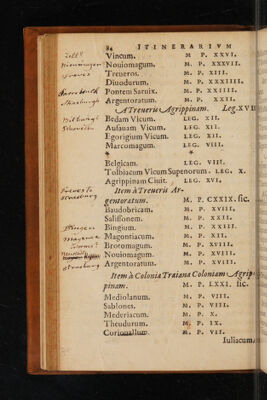 84 ITINERARIVM
Vincum. M P. XXVI.
Nouiomagum. M. P. XXXVII.
Treueros. M. P. XIII.
Diuodurum. M. P. XXXIIII.
Pontem Saruix. M. P. XXIIII.
Argentoratum. M. P. XXII.
A Treueris Agrippinam. Leg. XVII
Bedam Vicum. LEG. XII.
Ausauam Vicum. LEG. XII.
Egorigium Vicum. LEG. XII.
Marcomagum. LEG. VIII.
* * *
Belgicam. LEG. VIII.
Tolbiacum Vicum Supenorum. LEG. X.
Agrippinam Ciuit. LEG. XVI.
Item à Treueris Ar-
gentoratum. M. P. CXXIX. sic.
Baudobricam. M. P. XVIII.
Salissonem. M. P. XXII.
Bingium. M. P. XXIII.
Magontiacum. M. P. XII.
Brotomagum. M. P. XVIII.
Nouiomagum. M. P. XVIII.
Argentoratum. M. P. XVIII.
Item à Colonia Traiana Coloniam Agrip
pinam. M. P. LXXI. sic.
Mediolanum. M. P. VIII.
Sablones. M. P. VIII.
Mederiacum. M. P. X.
Theudurum. M. P. IX.
Coriouallum. M. P. VII.
Iuliacum